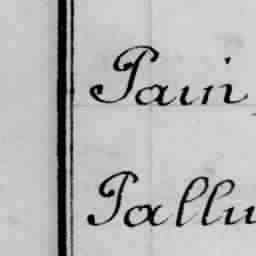 Pain
Pallu